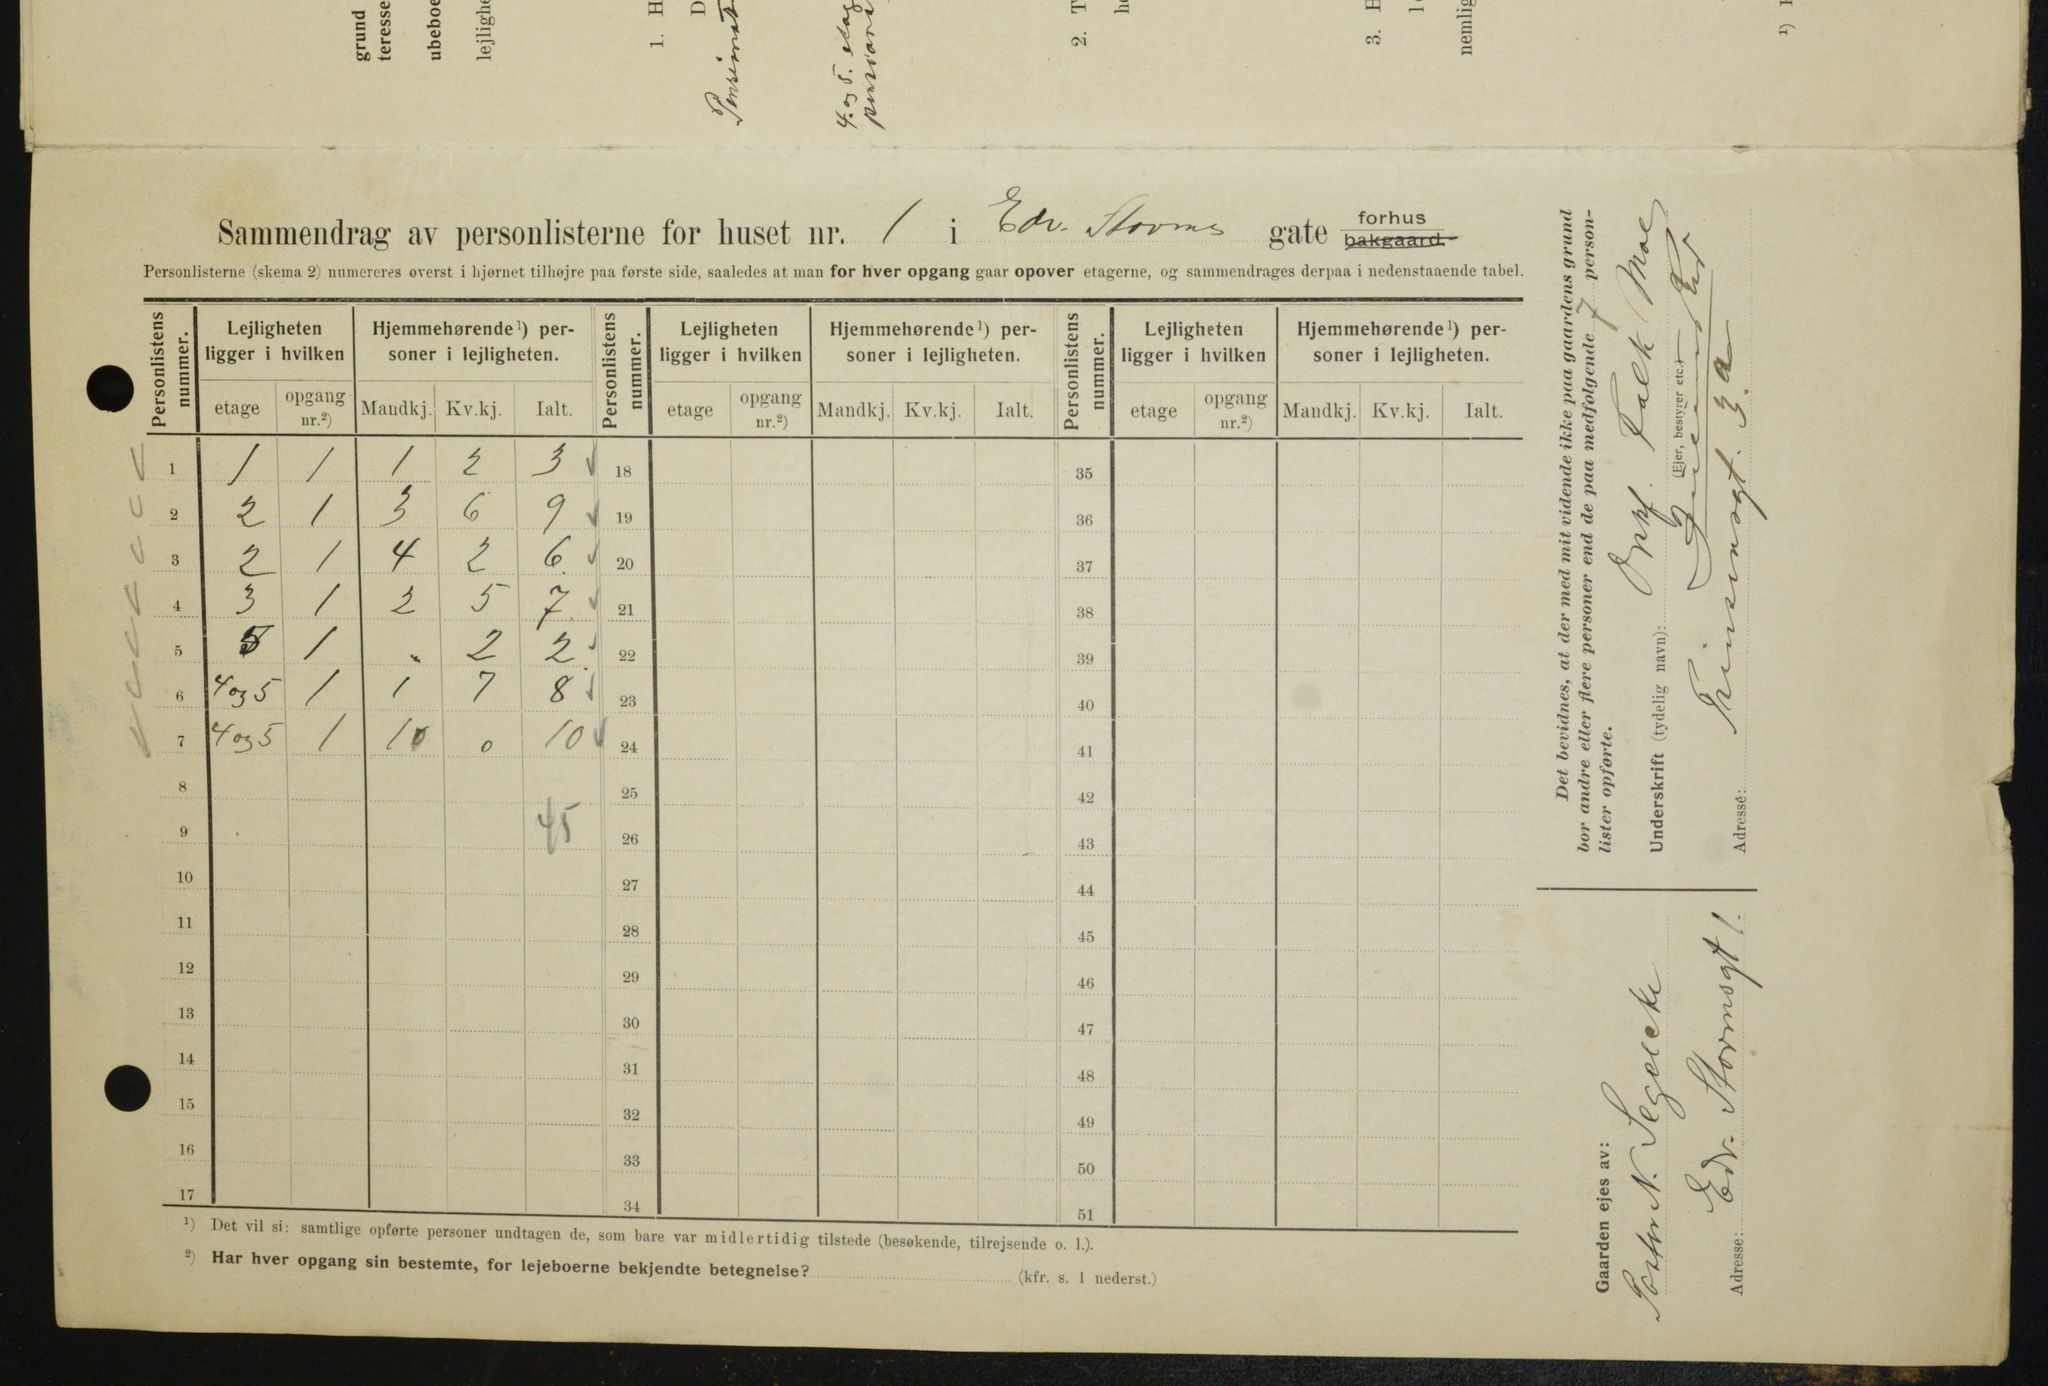 grund
teresse
ubeboe
lejlighe
1. H
D
4. og 5. etag
2. T
h
3. H
nemlig
Sammendrag av personlisterne for huset nr. 1 i Edv. Storms gate forhus bakgaard
Personlisterne (skema 2) numereres øverst i hjørnet tilhøjre paa første side, saaledes at man for hver opgang gaar opover etagerne, og sammendrages derpaa i nedenstaaende tabel.
Personlistens nummer. Lejligheten ligger i hvilken Hjemmehørende ¹) personer i lejligheten. Personlistens nummer. Lejligheten ligger i hvilken Hjemmehørende ¹) personer i lejligheten. Personlistens nummer. Lejligheten ligger i hvilken Hjemmehørende ¹) personer i lejligheten.
etage opgang nr.²) Mandkj. Kv.kj. Ialt. etage opgang nr.²) Mandkj. Kv.kj. Ialt. etage opgang nr.²) Mandkj. Kv.kj. Ialt.
1 1 1 1 2 3 18 35
2 2 1 3 6 9 19 36
3 2 1 4 2 6 20 37
4 3 1 2 5 7 21 38
5 5 1 . 2 2 22 39
6 4 og 5 1 1 7 8 23 40
7 4 og 5 1 10 0 10 24 41
8 25 42
9 45 26 43
10 27 44
11 28 45
12 29 46
13 30 47
14 31 48
15 32 49
16 33 50
17 34 51
¹) Det vil si: samtlige opførte personer undtagen de, som bare var midlertidig tilstede (besøkende, tilrejsende o. l.).
²) Har hver opgang sin bestemte, for lejeboerne bekjendte betegnelse? (kfr. s. 1 nederst.)
Det bevidnes, at der med mit vidende ikke paa gaardens grund
bor andre eller flere personer end de paa medfølgende 7 person-
lister opførte.
Underskrift (tydelig navn): Falck Moe
(Ejer, bestyrer etc.)
Adresse: Prinsensgt. 3 a
Gaarden ejes av:
N. Segelcke
Adresse: Edv. Stormsgt 1.